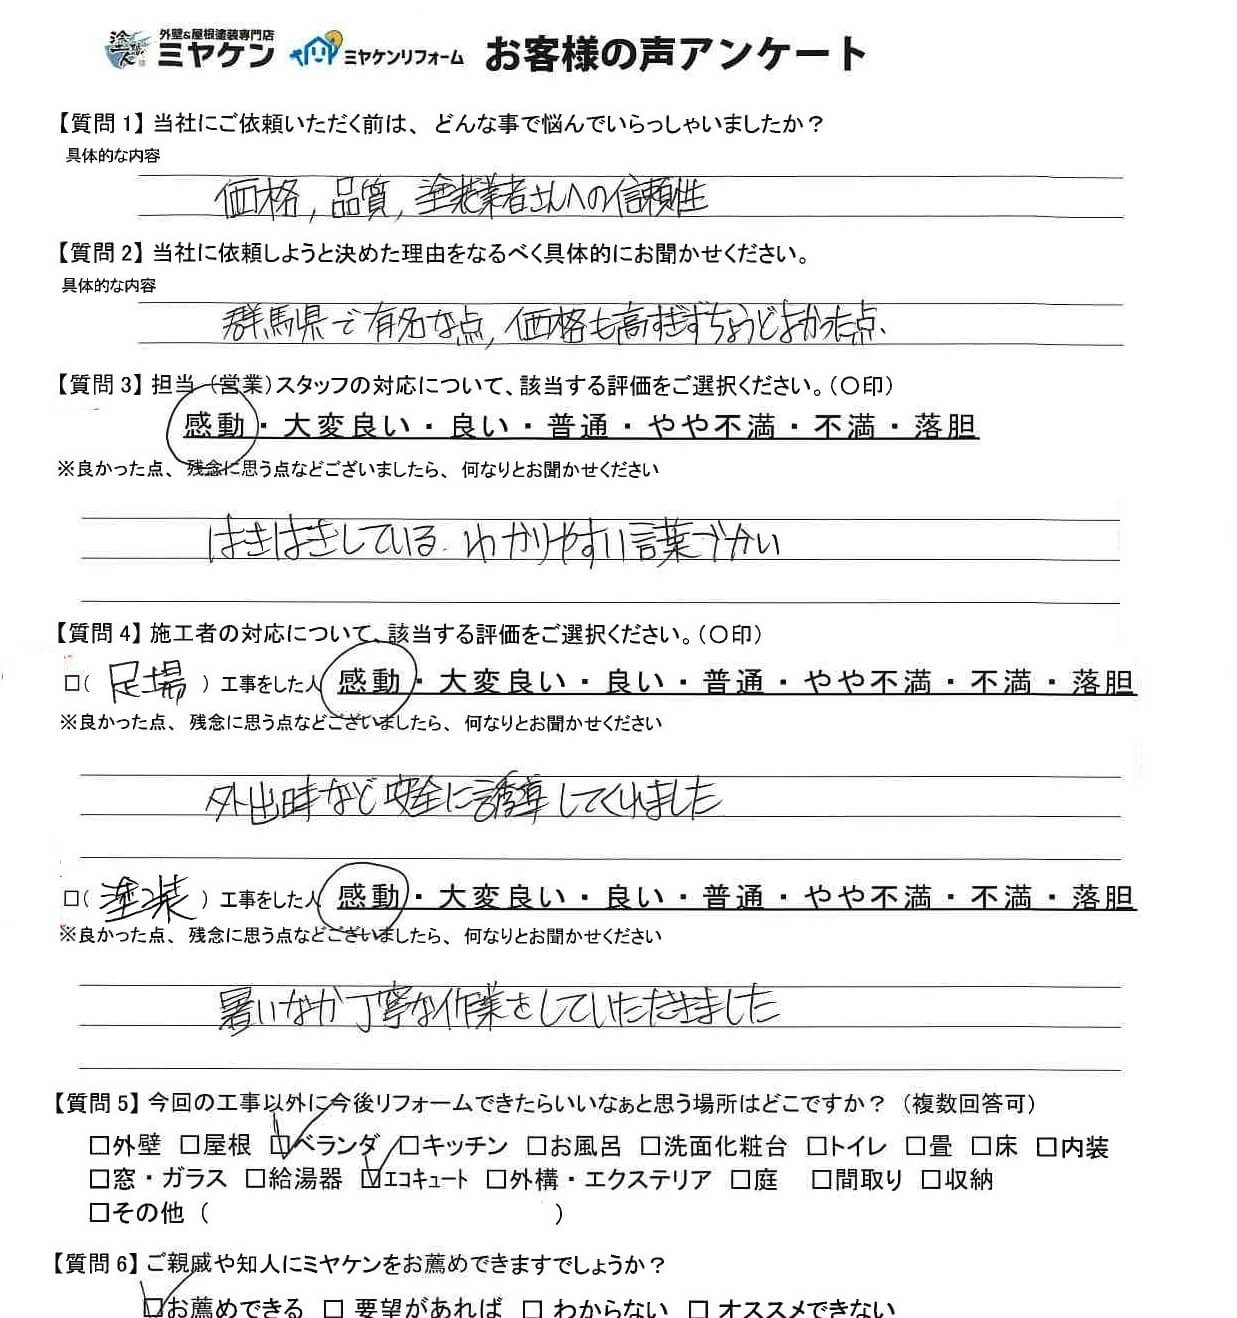 塗人 外壁&屋根塗装専門店
ミヤケン ミヤケンリフォーム お客様の声アンケート
【質問1】当社にご依頼いただく前は、どんな事で悩んでいらっしゃいましたか？
具体的な内容
価格，品質，塗装業者さんへの信頼性
【質問2】当社に依頼しようと決めた理由をなるべく具体的にお聞かせください。
具体的な内容
群馬県で有名な点，価格も高すぎずちょうどよかった点、
【質問3】担当（営業）スタッフの対応について、該当する評価をご選択ください。（〇印）
感動・大変良い・良い・普通・やや不満・不満・落胆
※良かった点、残念に思う点などございましたら、何なりとお聞かせください
はきはきしている．わかりやすい言葉づかい
【質問4】施工者の対応について、該当する評価をご選択ください。（〇印）
□（ 足場 ）工事をした人 感動・大変良い・良い・普通・やや不満・不満・落胆
※良かった点、残念に思う点などございましたら、何なりとお聞かせください
外出時など安全に誘導してくれました
□（ 塗装 ）工事をした人 感動・大変良い・良い・普通・やや不満・不満・落胆
※良かった点、残念に思う点などございましたら、何なりとお聞かせください
暑いなか丁寧な作業をしていただきました
【質問5】今回の工事以外に今後リフォームできたらいいなぁと思う場所はどこですか？（複数回答可）
□外壁 □屋根 ☑ベランダ □キッチン □お風呂 □洗面化粧台 □トイレ □畳 □床 □内装
□窓・ガラス □給湯器 ☑エコキュート □外構・エクステリア □庭 □間取り □収納
□その他（ ）
【質問6】ご親戚や知人にミヤケンをお薦めできますでしょうか？
☑お薦めできる □ 要望があれば □ わからない □ オススメできない